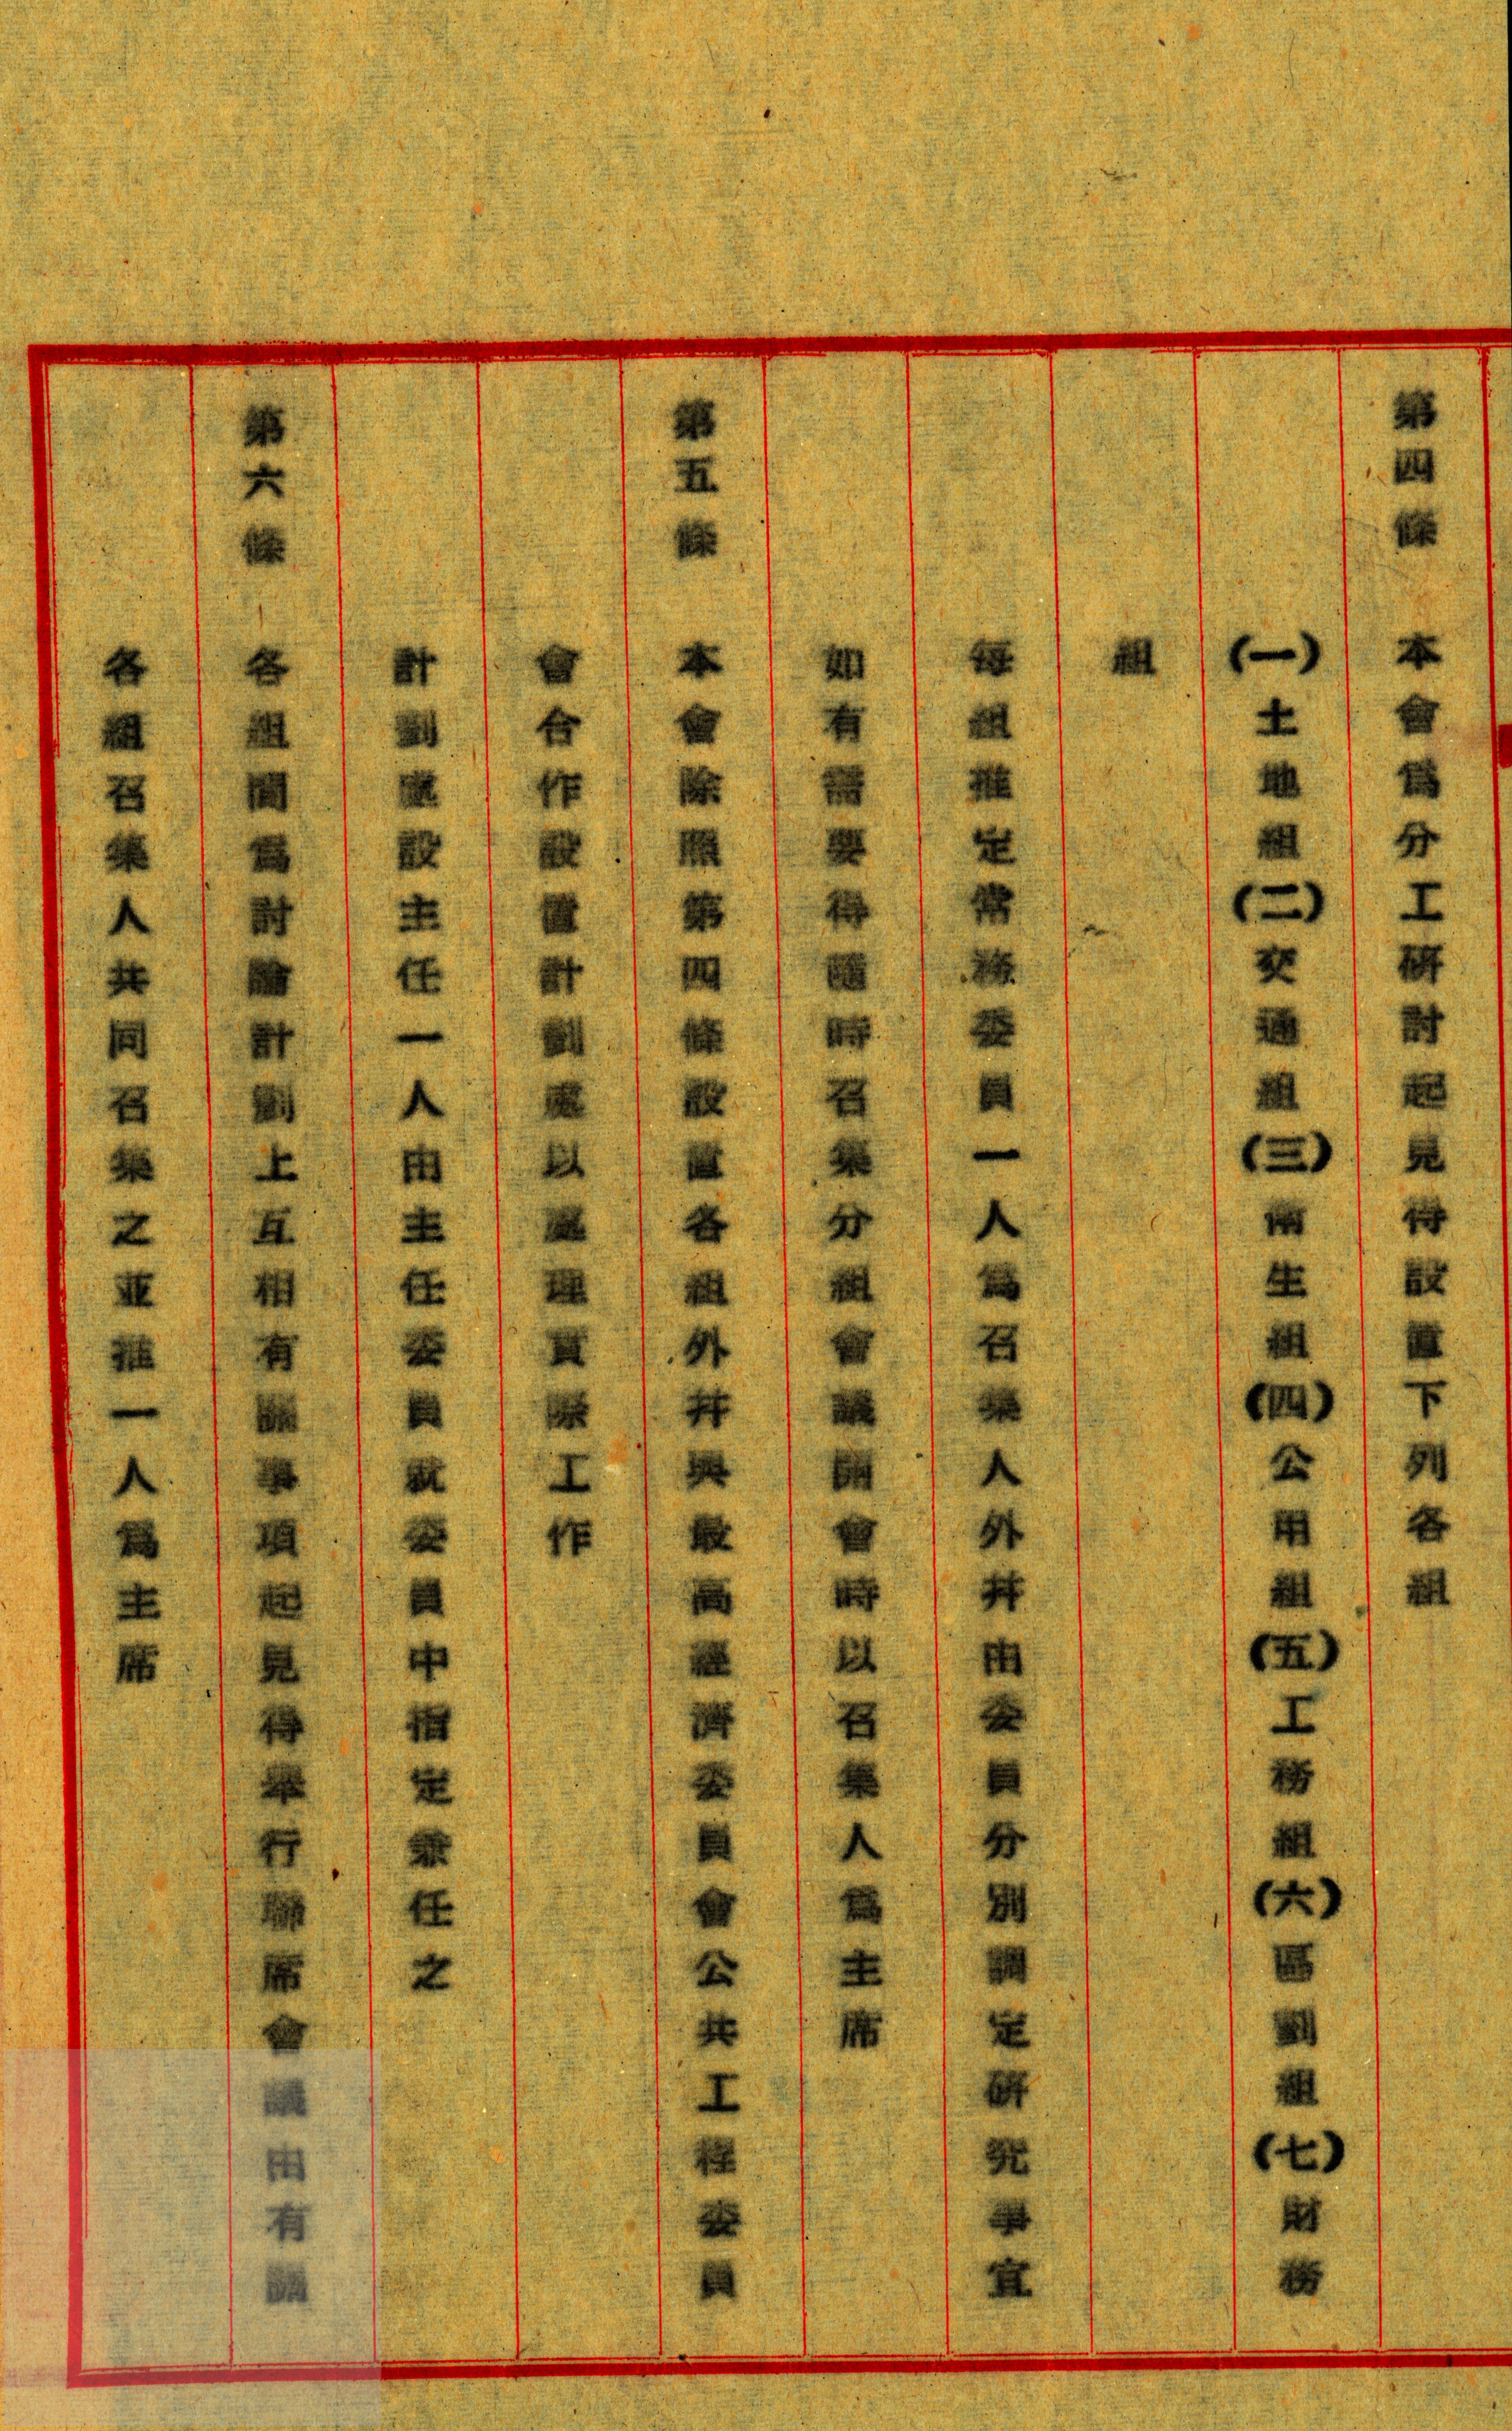 第四條　本會爲分工研討起見得設置下列各組
(一)土地組(二)交通組(三)衛生組(四)公用組(五)工務組(六)區劃組(七)財務
組
每組推定常務委員一人爲召集人外幷由委員分別調定研究事宜
如有需要得隨時召集分組會議開會時以召集人爲主席
第五條　本會除照第四條設置各組外幷與最高經濟委員會公共工程委員
會合作設置計劃處以處理實際工作
計劃處設主任一人由主任委員就委員中指定兼任之
第六條　各組間爲討論計劃上互相有關事項起見得舉行聯席會議由有關
各組召集人共同召集之並推一人爲主席